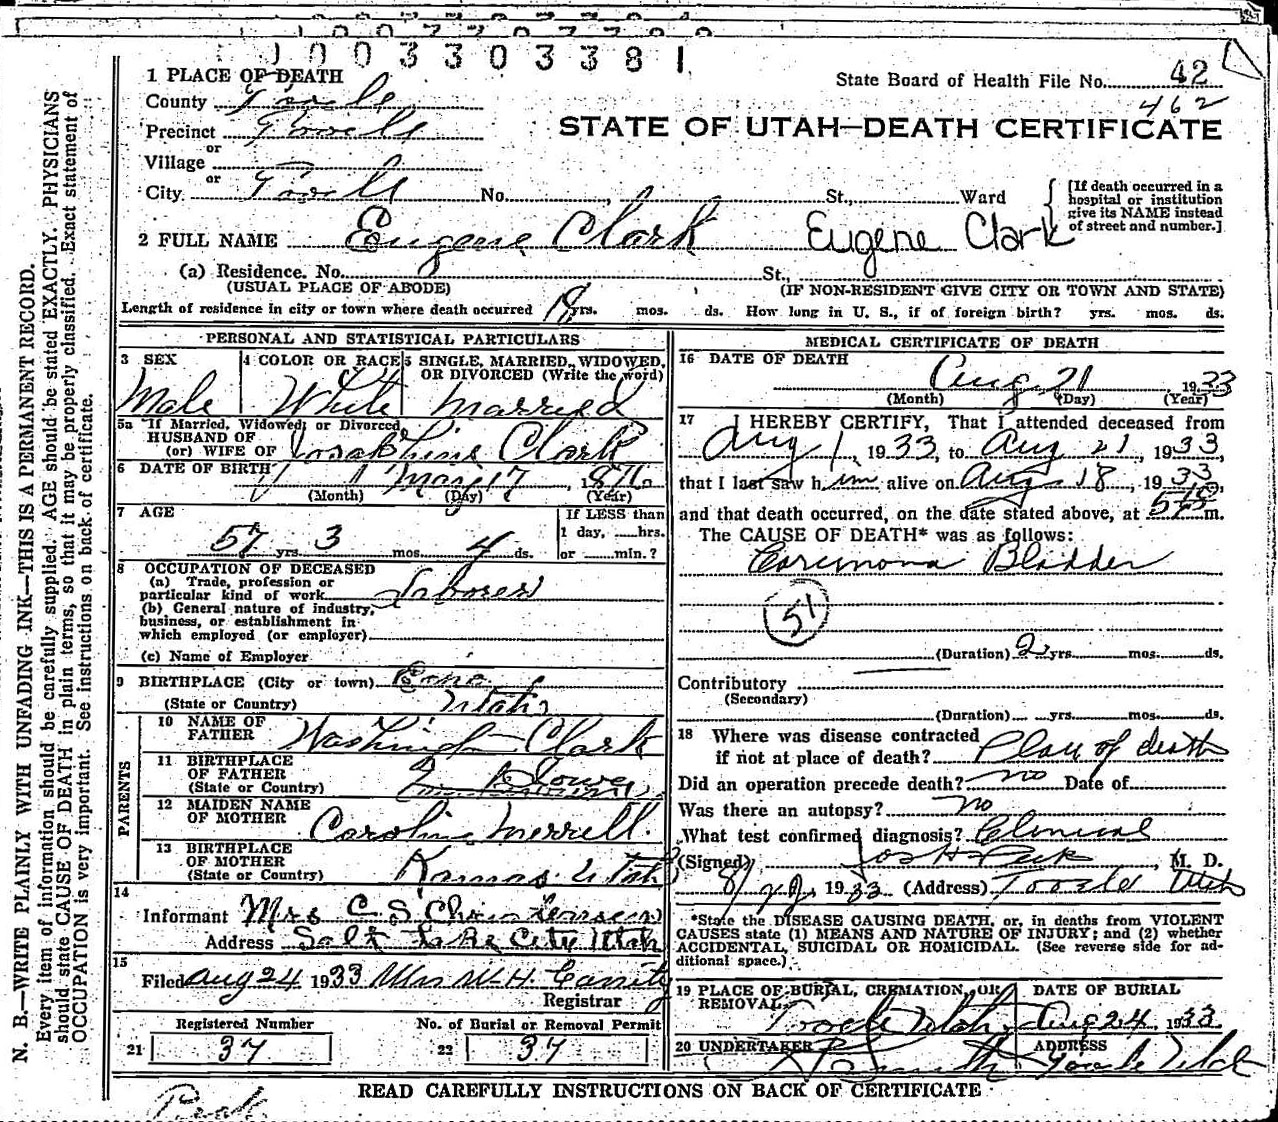 1003303381
1 PLACE OF DEATH
State Board of Health File No. 42
462
County Tooele
Precinct Tooele
STATE OF UTAH—DEATH CERTIFICATE
or
Village
or
City Tooele No. , St., Ward
[If death occurred in a
hospital or institution
give its NAME instead
of street and number.]
2 FULL NAME Eugene Clark Eugene Clark
(a) Residence. No. St.,
(USUAL PLACE OF ABODE) (IF NON-RESIDENT GIVE CITY OR TOWN AND STATE)
Length of residence in city or town where death occurred yrs. mos. ds. How long in U. S., if of foreign birth? yrs. mos. ds.
PERSONAL AND STATISTICAL PARTICULARS
3 SEX 4 COLOR OR RACE 5 SINGLE, MARRIED, WIDOWED,
OR DIVORCED (Write the word)
Male White Married
5a If Married, Widowed, or Divorced
HUSBAND OF
(or) WIFE OF Josephine Clark
6 DATE OF BIRTH May 17, 1876
(Month) (Day) (Year)
7 AGE If LESS than
1 day, hrs.
57 yrs. 3 mos. 4 ds. or min.?
8 OCCUPATION OF DECEASED
(a) Trade, profession or
particular kind of work Laborer
(b) General nature of industry,
business, or establishment in
which employed (or employer)
(c) Name of Employer
9 BIRTHPLACE (City or town)
(State or Country) Utah
PARENTS
10 NAME OF
FATHER Washington Clark
11 BIRTHPLACE
OF FATHER
(State or Country)
12 MAIDEN NAME
OF MOTHER Caroline Merrell
13 BIRTHPLACE
OF MOTHER
(State or Country) Kamas Utah
14
Informant Mrs C S Christensen
Address Salt Lake City Utah
15
Filed Aug 24 1933 Mrs W. H.
Registrar
Registered Number No. of Burial or Removal Permit
21 37 22 37
MEDICAL CERTIFICATE OF DEATH
16 DATE OF DEATH
Aug 21, 1933
(Month) (Day) (Year)
17 I HEREBY CERTIFY, That I attended deceased from
Aug 1, 1933, to Aug 21, 1933,
that I last saw him alive on Aug 18, 1933,
and that death occurred, on the date stated above, at m.
The CAUSE OF DEATH* was as follows:
Carcinoma Bladder
51
(Duration) 2 yrs. mos. ds.
Contributory
(Secondary)
(Duration) yrs. mos. ds.
18 Where was disease contracted
if not at place of death? Place of death
Did an operation precede death? no Date of
Was there an autopsy? no
What test confirmed diagnosis? Clinical
(Signed) Jos H Peck, M. D.
1933 (Address) Tooele Utah
*State the DISEASE CAUSING DEATH, or, in deaths from VIOLENT
CAUSES state (1) MEANS AND NATURE OF INJURY; and (2) whether
ACCIDENTAL, SUICIDAL OR HOMICIDAL. (See reverse side for ad-
ditional space.)
19 PLACE OF BURIAL, CREMATION, OR DATE OF BURIAL
REMOVAL Tooele Utah Aug 24, 1933
20 UNDERTAKER ADDRESS
Tooele Utah
READ CAREFULLY INSTRUCTIONS ON BACK OF CERTIFICATE
N. B.—WRITE PLAINLY WITH UNFADING INK—THIS IS A PERMANENT RECORD.
Every item of information should be carefully supplied. AGE should be stated EXACTLY. PHYSICIANS
should state CAUSE OF DEATH in plain terms, so that it may be properly classified. Exact statement of
OCCUPATION is very important. See instructions on back of certificate.